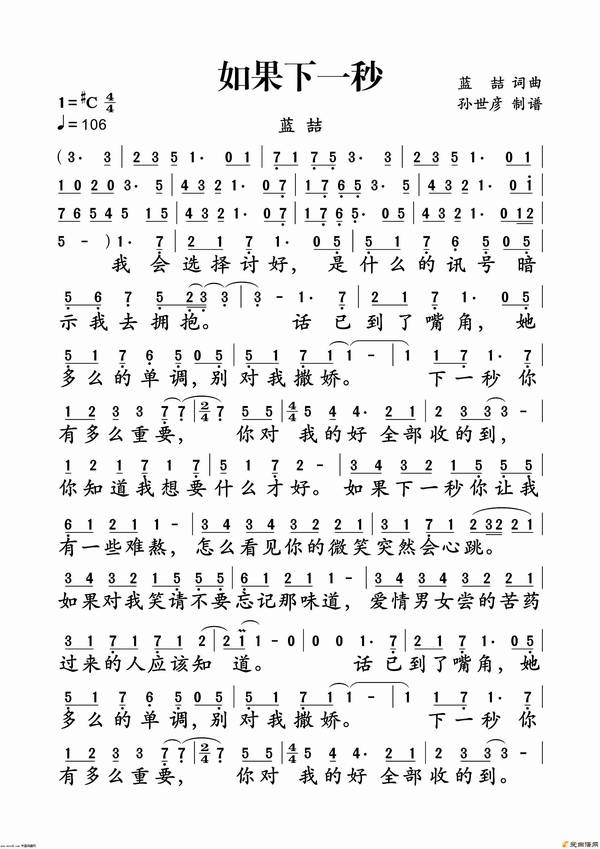 如果下一秒
蓝 喆 词曲
1=#C 4/4
孙世彦 制谱
♩=106
蓝 喆
(3· 3 | 2 3 5 1· 0 1 | 7 1 7 5 3· 3 | 2 3 5 1· 0 1 |
1 0 2 0 3· 5 | 4 3 2 1· 0 7 | 1 7 6 5 3· 5 | 4 3 2 1· 0 i |
7 6 5 4 5 1 5 | 4 3 2 1· 0 7 | 1 7 6 5· 0 5 | 4 3 2 1· 0 1 2 |
5 - ) 1· 7 | 2 1 7 1· 0 5 | 5 1 7 6 5 0 5 |
我 会 选 择 讨 好， 是 什 么 的 讯 号 暗
5 6 7 5 2 3 | 3 - 1· 7 | 2 1 7 1· 0 5 |
示 我 去 拥 抱。 话 已 到 了 嘴 角， 她
5 1 7 6 5 0 5 | 5 1 5 7 1 | 1 - 1 | 1 1 7 1· |
多 么 的 单 调， 别 对 我 撒 娇。 下 一 秒 你
1 2 3 3 7 7 | 2/4 7 5 5 | 4/4 5 4 4· 0 1 | 2 2 3 3 0 |
有 多 么 重 要， 你 对 我 的 好 全 部 收 的 到，
1 2 1 7 1 7 | 5 1 7 2 - | 3 4 3 2 1 5 5 5 |
你 知 道 我 想 要 什 么 才 好。 如 果 下 一 秒 你 让 我
6 1 2 1 1 - | 3 4 3 4 3 4 3 4 | 3 3 1 7 1 2 3 2 2 1 |
有 一 些 难 熬， 怎 么 看 见 你 的 微 笑 突 然 会 心 跳。
3 4 3 2 1 5 5 5 | 6 1 2 1 1· 3 | 3 4 3 4 3 4 3 4 |
如 果 对 我 笑 请 不 要 忘 记 那 味 道， 爱 情 男 女 尝 的 苦 药
3 3 1 7 1 7 1 2 | 2 1 1 - 0 | 0 0 1· 7 | 2 1 7 1· 0 5 |
过 来 的 人 应 该 知 道。 话 已 到 了 嘴 角， 她
5 1 7 6 5 0 5 | 5 1 5 7 1 | 1 - 1 | 1 1 7 1· |
多 么 的 单 调， 别 对 我 撒 娇。 下 一 秒 你
1 2 3 3 7 7 | 2/4 7 5 5 | 4/4 5 4 4· 0 1 | 2 2 3 3 0 |
有 多 么 重 要， 你 对 我 的 好 全 部 收 的 到。